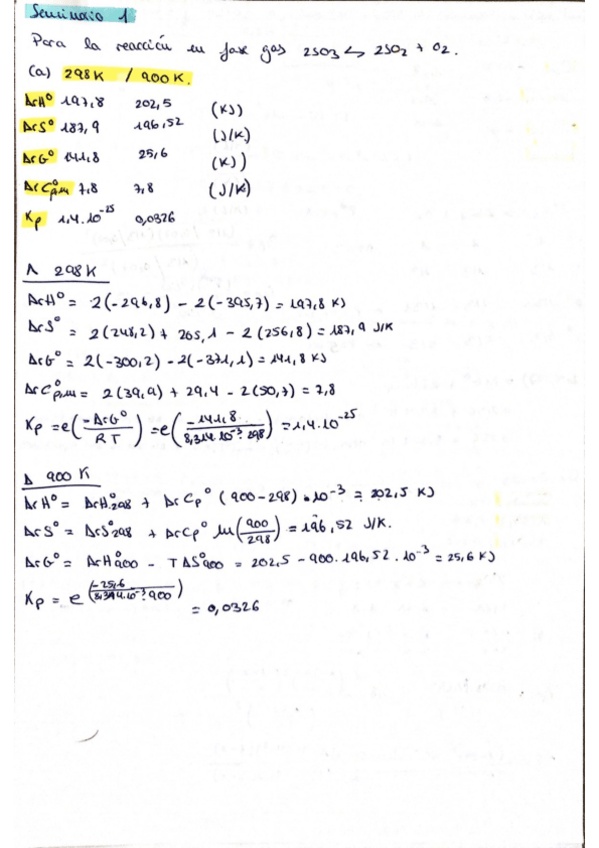 Seminario 1
Para la reacción en fase gas 2SO3 ⇆ 2SO2 + O2.
(a) 298K / 900K.
ΔrH° 197,8 202,5 (KJ)
ΔrS° 187,9 196,52 (J/K)
ΔrG° 141,8 25,6 (KJ)
ΔrC°p,m 7,8 7,8 (J/K)
Kp 1,4·10⁻²⁵ 0,0326
Λ 298K
ΔrH° = 2(-296,8) - 2(-395,7) = 197,8 KJ
ΔrS° = 2(248,2) + 205,1 - 2(256,8) = 187,9 J/K
ΔrG° = 2(-300,2) - 2(-371,1) = 141,8 KJ
ΔrC°p,m = 2(39,9) + 29,4 - 2(50,7) = 7,8
Kp = e(-ΔrG°/RT) = e(-141,8/8,314·10⁻³·298) = 1,4·10⁻²⁵
Δ 900 K
ΔrH° = ΔrH°298 + ΔrCp° (900-298)·10⁻³ = 202,5 KJ
ΔrS° = ΔrS°298 + ΔrCp° ln(900/298) = 196,52 J/K.
ΔrG° = ΔrH°900 - TΔS°900 = 202,5 - 900·196,52·10⁻³ = 25,6 KJ
Kp = e(-25,6/8,314·10⁻³·900) = 0,0326